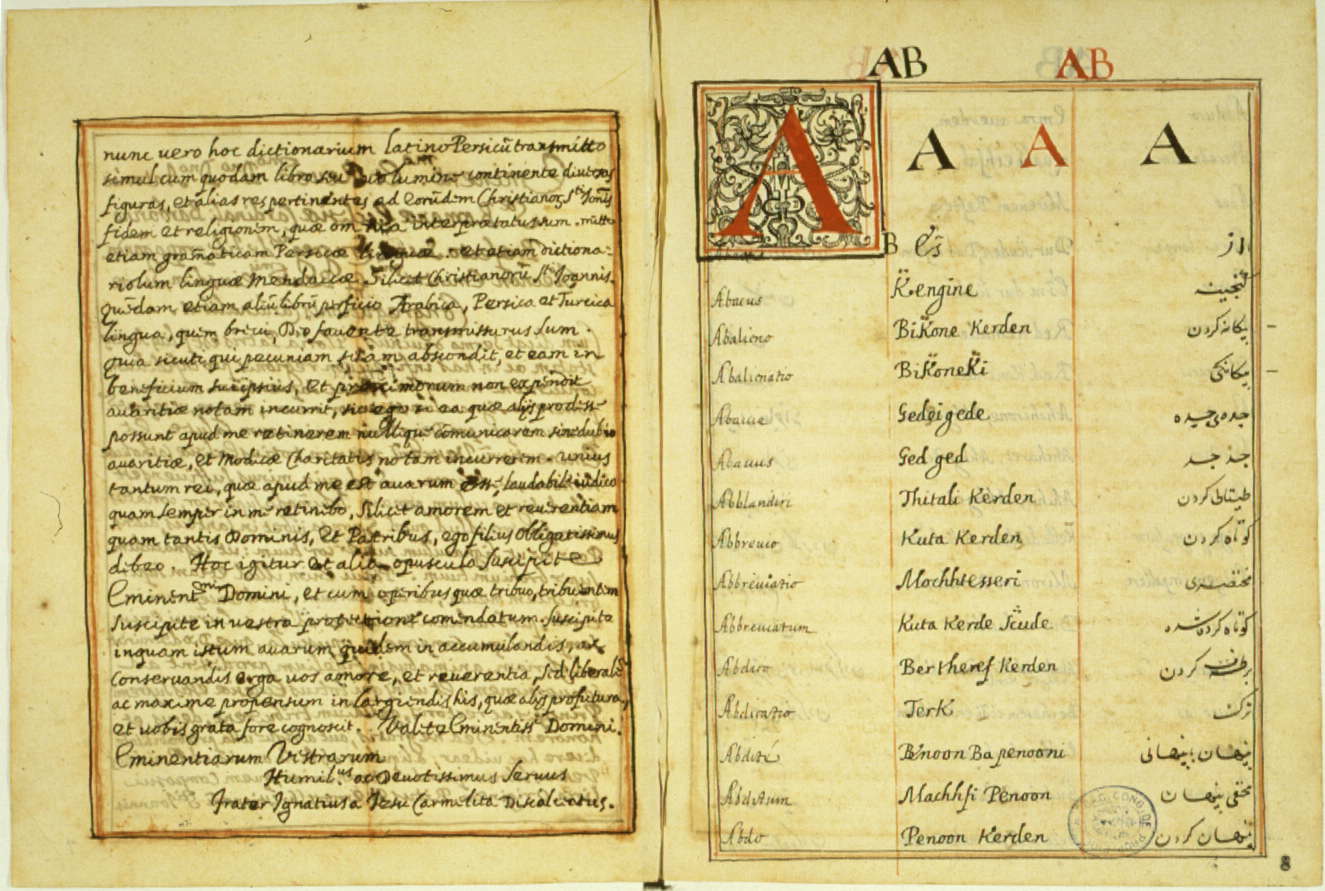 nunc uero hoc dictionarium latino Persicũ transmitto
simul cum quodam libro seu volumine continente diuersas
figuras, et alias res pertinentes ad eorũdem Christianoꝝ Sᵗⁱ Joñis
fidem et religionem, quæ omnia interpretatus sum. mitto
etiam grãmaticam Persicæ linguæ. et etiam dictiona-
riolum linguæ Mendaicæ Silicet Christianorũ Sᵗⁱ Joannis.
Quẽdam etiam aliũ librũ perficio Arabica, Persica et Turcica
lingua, quem breui, Deo fauente transmissurus sum.
quia sicuti qui pecuniam suam abscondit, et eam in
beneficium sui ipsius, et proximorum non expendit
auaritiæ notam incurrit, sic ego si ea quæ alijs prodesse
possunt apud me retinerem nulliqué cõmunicarem sine dubio
auaritiæ, et modicæ Charitatis notam incurrerem. Unius
tantum rei, quæ apud me est auarum esse laudabile iudico
quam semper in me retinebo, Silicet amorem et reuerentiam
quam tantis Dominis, et Patribus, ego filius obligatissimus
debeo. Hoc igitur et alia opuscula suscipite
Eminentᵐⁱ Domini, et cum operibus quæ tribuo, tribuentem
suscipite in vestra protectione comendatum. Suscipite
inquam istum auarum quidem in accumulandis, ac
conseruandis erga uos amore, et reuerentia, sed liberalẽ
ac maxime propensum in largiendis his, quæ alijs profutura,
et uobis grata fore cognoscit. Valete Eminentissⁱ Domini.
Eminentiarum Vestrarum
Humil.ᵘˢ ac Deuotissimus seruus
frater Ignatius a Jesu Carmelita Discalceatus.
AB AB
A A A A
B Es از
Abacus Kengine گنجینه
Abalieno Bikone Kerden بیکانه کردن
Abalienatio BiKoneKi بیکانکی
Abauia Gedeigede جده‌ی جده
Abauus Ged ged جد جد
Abblandiri Thitali Kerden طیتالی کردن
Abbreuio Kuta Kerden کوتاه کردن
Abbreuiatio Mochhtesseri مختصری
Abbreuiatum Kuta Kerde Scude کوتاه کرده شده
Abdico Bertheref Kerden برطرف کردن
Abdicatio Terk ترک
Abditè Penoon Ba penooni پنهان با پنهانی
Abditum Machhfi Penoon مخفی پنهان
Abdo Penoon Kerden پنهان کردن
8